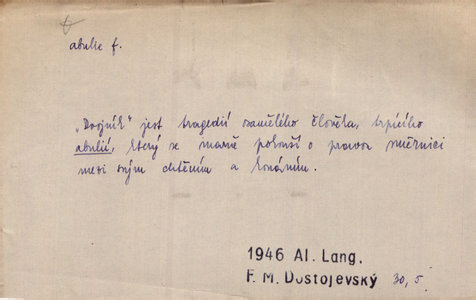 abulie f.
„Dvojník“ jest tragedií osamělého člověka, trpícího
abulií, který se marně pokouší o pravou směrnici
mezi svým chtěním a konáním.
1946 Al. Lang,
F. M. Dostojevský 30, 5.